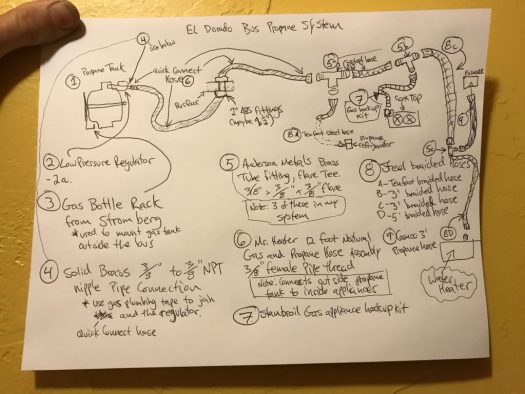 El Dorado Bus Propane System
4
see below
1
Propane Tank
Quick Connect
Hose
6
Bus floor
1" ABS Fittings
2
Low Pressure Regulator
- 2a.
3
Gas Bottle Rack
from Stromberg
*used to mount gas tank
outside the bus
4
Solid Brass 3/8" to 3/8" NPT
nipple Pipe Connection
* use gas plumbing tape to join
and the regulator.
quick Connect hose
5a
hose
5b
8c
7
Gas hookup
Kit
cook top
8A
Ten foot steel hose
Propane
refrigerator
5
Anderson Metals Brass
Tube fitting, flare Tee
3/8" x 3/8" x 3/8" flare
Note: 3 of these in my
system
6
Mr. Heater 12 foot Natural
Gas and Propane Hose Assembly
3/8 female Pipe thread
Note: Connects outside propane
tank to inside appliances
7
Stanbroil Gas appliance hookup kit
5c
9
8
Steel braided hoses
A- Ten foot braided hose
B- 3' braided hose
C- 3' braided hose
D- 5' braided hose
9
Camco 3'
Propane hose
8D
Water
Heater